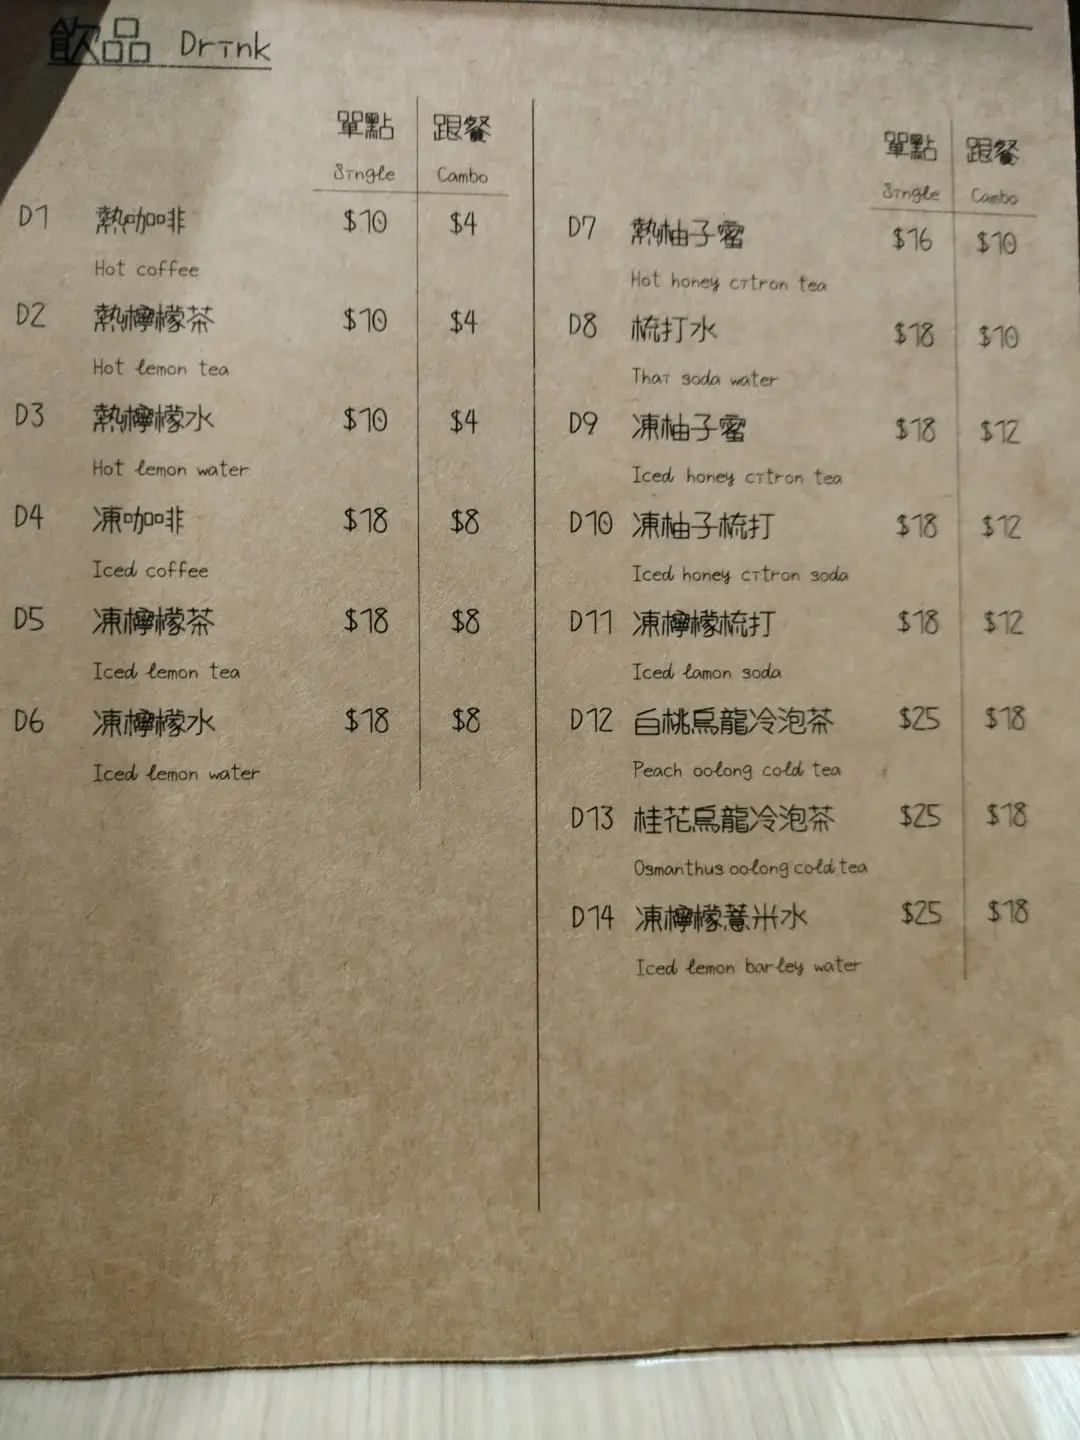 飲品 Drink
單點 跟餐
Single Cambo
D1 熱咖啡 $10 $4
Hot coffee
D2 熱檸檬茶 $10 $4
Hot lemon tea
D3 熱檸檬水 $10 $4
Hot lemon water
D4 凍咖啡 $18 $8
Iced coffee
D5 凍檸檬茶 $18 $8
Iced lemon tea
D6 凍檸檬水 $18 $8
Iced lemon water
單點 跟餐
Single Cambo
D7 熱柚子蜜 $16 $10
Hot honey citron tea
D8 梳打水 $18 $10
Thai soda water
D9 凍柚子蜜 $18 $12
Iced honey citron tea
D10 凍柚子梳打 $18 $12
Iced honey citron soda
D11 凍檸檬梳打 $18 $12
Iced lamon soda
D12 白桃烏龍冷泡茶 $25 $18
Peach oolong cold tea
D13 桂花烏龍冷泡茶 $25 $18
Osmanthus oolong cold tea
D14 凍檸檬薏米水 $25 $18
Iced lemon barley water